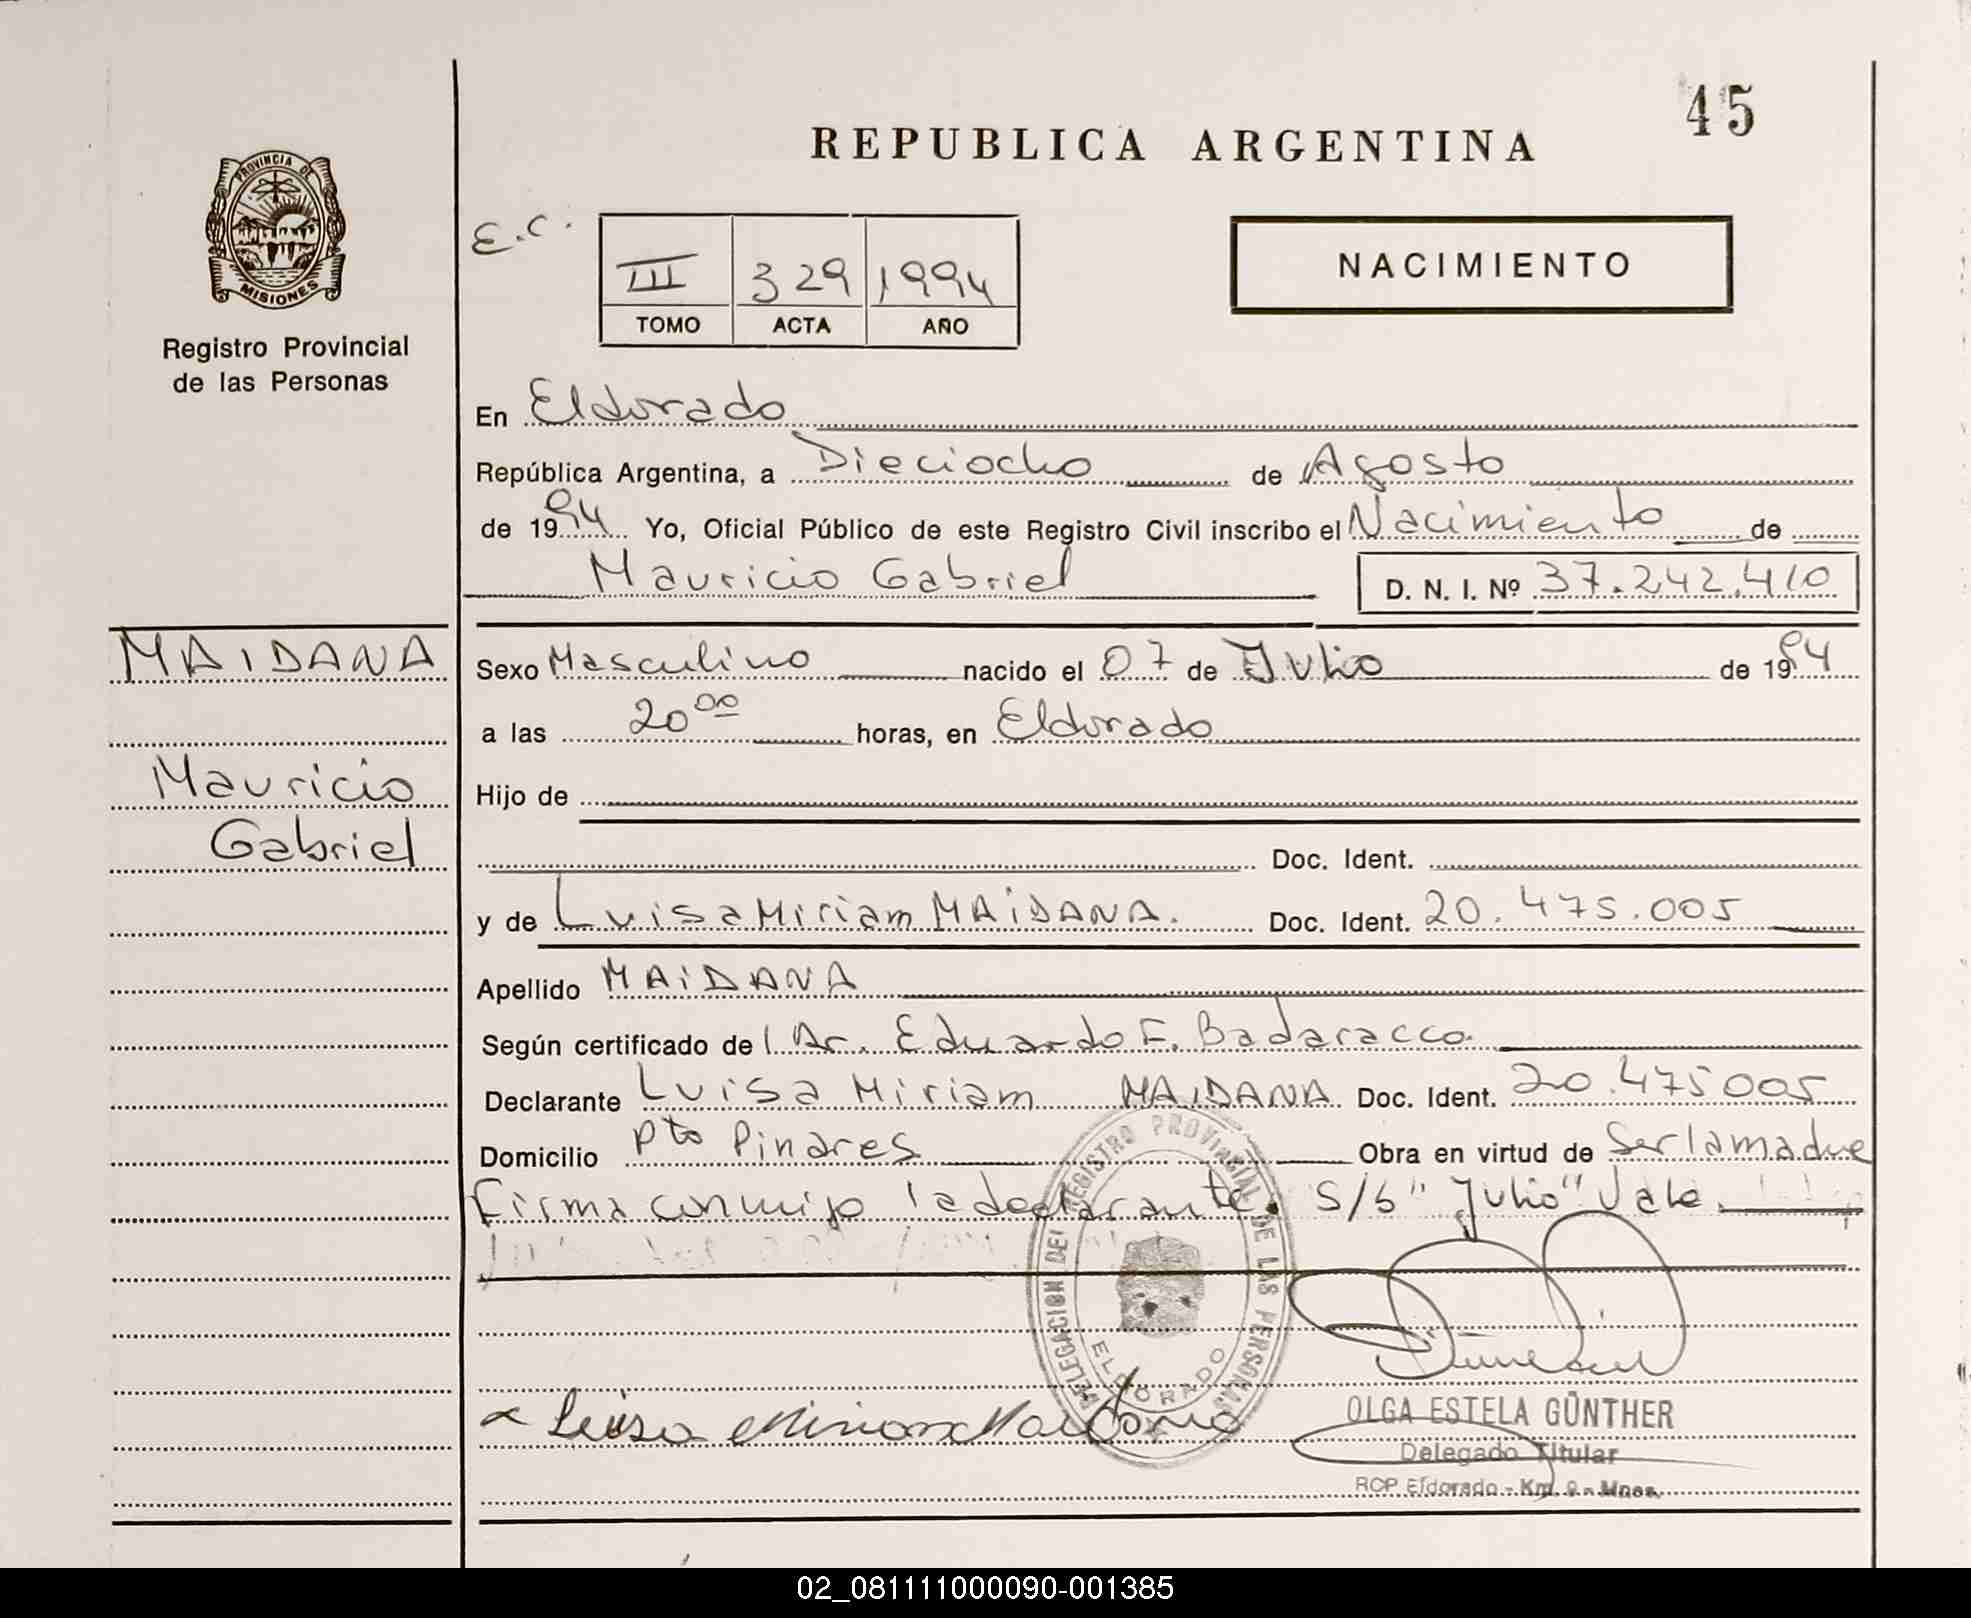 45
REPUBLICA ARGENTINA
PROVINCIA DE
MISIONES
Registro Provincial
de las Personas
E.C.
III 329 1994
TOMO ACTA AÑO
NACIMIENTO
En Eldorado
República Argentina, a Dieciocho de Agosto
de 1994 Yo, Oficial Público de este Registro Civil inscribo el Nacimiento de
Mauricio Gabriel D. N. I. Nº 37.242.410
MAIDANA
Mauricio
Gabriel
Sexo Masculino nacido el 07 de Julio de 1994
a las 20 00 horas, en Eldorado
Hijo de
Doc. Ident.
y de Luisa Miriam MAIDANA. Doc. Ident. 20.475.005
Apellido MAIDANA
Según certificado de Dr. Eduardo F. Badaracco
Declarante Luisa Miriam MAIDANA Doc. Ident. 20.475005
Domicilio Pto Pinares Obra en virtud de Ser la madre
Firma conmigo la declarante. S/b "Julio" Vale
DELEGACION DEL REGISTRO PROVINCIAL DE LAS PERSONAS
ELDORADO
Luisa Miriam Maidana
OLGA ESTELA GÜNTHER
Delegado Titular
RCP Eldorado - Km. 9 - Mnes.
02_081111000090-001385